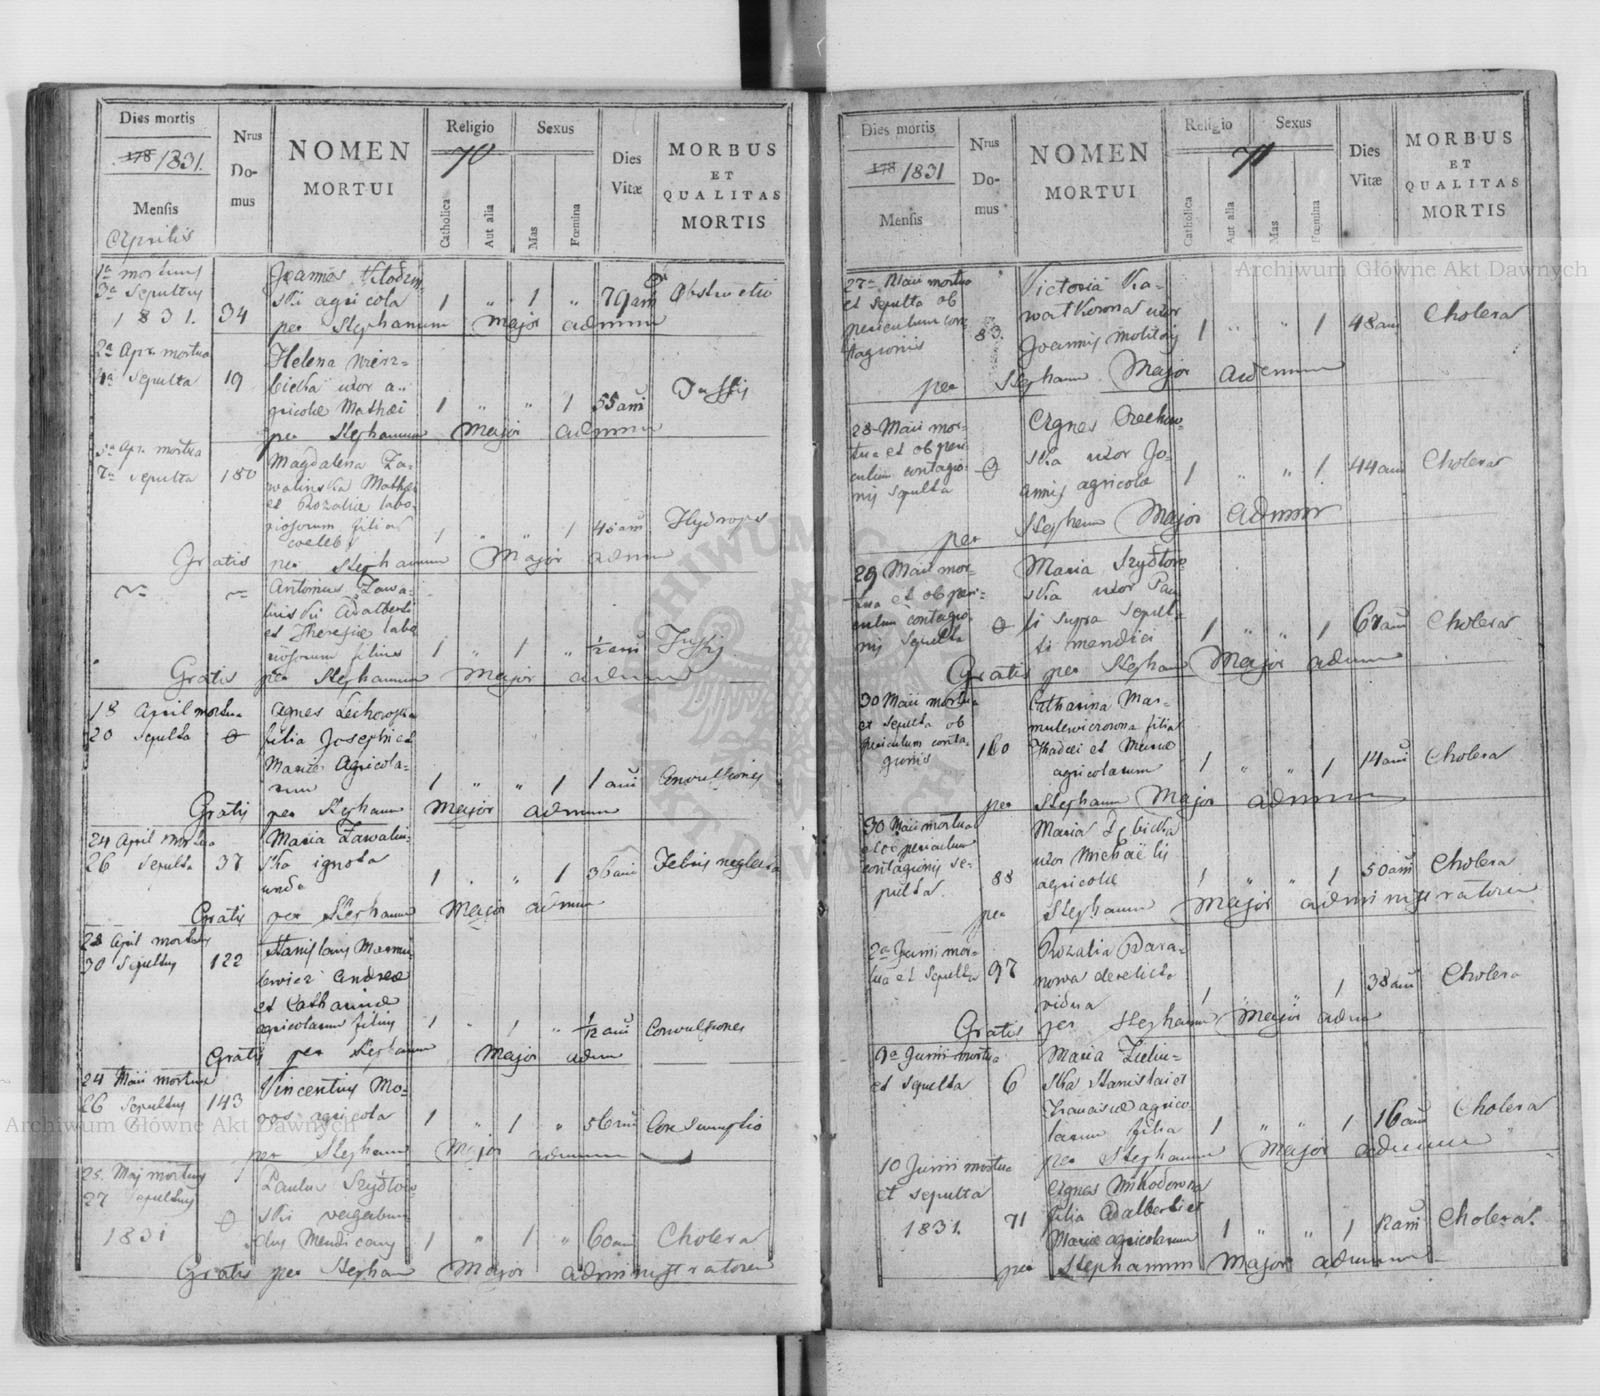 Dies mortis
178 1831.
Mensis
Aprilis
Nrus
Do-
mus
NOMEN
MORTUI
Religio
70
Catholica
Aut alia
Sexus
Mas
Fœmina
Dies
Vitæ
MORBUS
ET
QUALITAS
MORTIS
1a mortuus
3a Sepultus
1831.
34
Joannes
ski agricola
1 " 1 " 79 an Obstructio
per Stephanum Major admin
2a Apr. mortua
4a Sepulta
19
Helena Mierz-
bicka uxor a-
gricolæ Mathæi
1 " " 1 55 an
per Stephanum Major admin
5a Apr. mortua
7a sepulta
180
Magdalena Za-
walinska Mathæi
et Rozaliæ labo-
riosorum filia
coelebs
1 " " 1 45 an Hydrops
Gratis per Stephanum Major admin
Antonius Zawa-
linski Adalberti
et Theresiæ labo
riosorum filius
1 " 1 " 1/2 an Tussis
Gratis per Stephanum Major admin
18 April mortua
20 Sepulta
Agnes Lechowska
filia Josephi et
Mariæ Agricola-
rum
1 " " 1 1 an Convulsiones
Gratis per Stephanum Major admin
24 April mortua
26 Sepulta
37
Maria Zawalin-
ska ignota
unde
1 " " 1 36 an Febris neglecta
Gratis per Stephanum Major admin
28 April mortuus
30 Sepultus
122
Stanislaus Marmu
lewicz Andreæ
et Catharinæ
agricolarum filius
1 " 1 " 1/12 an Convulsiones
Gratis per Stephanum Major admin
24 Maii mortuus
26 Sepultus
143
Vincentius Mo-
ros agricola
1 " 1 " 56 an Consumptio
per Stephanum Major admin
25. Maj mortuus
27 Sepultus
1831
Paulus Szydlow
ski vagabun
dus Mendicans
1 " 1 " 60 an Cholera
Gratis per Stephanum Major administratorem
Dies mortis
178 1831
Mensis
Nrus
Do-
mus
NOMEN
MORTUI
Religio
71
Catholica
Aut alia
Sexus
Mas
Fœmina
Dies
Vitæ
MORBUS
ET
QUALITAS
MORTIS
27a Maii mortua
et Sepulta ob
periculum con-
tagionis
83.
Victoria Kwa-
uxor
Joannis Molitoris
1 " " 1 48 an Cholera
per Stephanum Major admin
28 Maii mor-
tua et ob peri-
culum contagio-
nis sepulta
Agnes Orechow-
ska uxor Jo-
annis agricolæ
1 " " 1 44 an Cholera
per Stephanum Major admin
29 Maii mor-
tua et ob peri-
culum contagio-
nis sepulta
Maria Szydlow
ska uxor Pau
li supra sepul-
ti mendici
1 " " 1 an Cholera
Gratis per Stephanum Major admin
30 Maii mortua
et Sepulta ob
periculum conta-
gionis
160
Catharina Mar-
mulewiczowna filia
Thadæi et Mariæ
agricolarum
1 " " 1 14 an Cholera
per Stephanum Major admin
30 Maii mortua
et ob periculum
contagionis se-
pulta
88
Maria
uxor Michaëlis
agricolæ
1 " " 1 50 an Cholera
per Stephanum Major administratorem
2a Junii mor-
tua et Sepulta
97
Rozalia Bara-
nowa derelicta
vidua
1 " " 1 38 an Cholera
Gratis per Stephanum Major admin
Junii mortua
et sepulta
6
Maria Zielin-
ska Stanislai et
Franciscæ agrico-
larum filia
1 " " 1 16 an Cholera
per Stephanum Major admin
10 Junii mortua
et sepulta
1831.
71
Agnes
filia Adalberti et
Mariæ agricolarum
1 " " 1 12 an Cholera.
per Stephanum Major admin
Archiwum Główne Akt Dawnych
Archiwum Główne Akt Dawnych